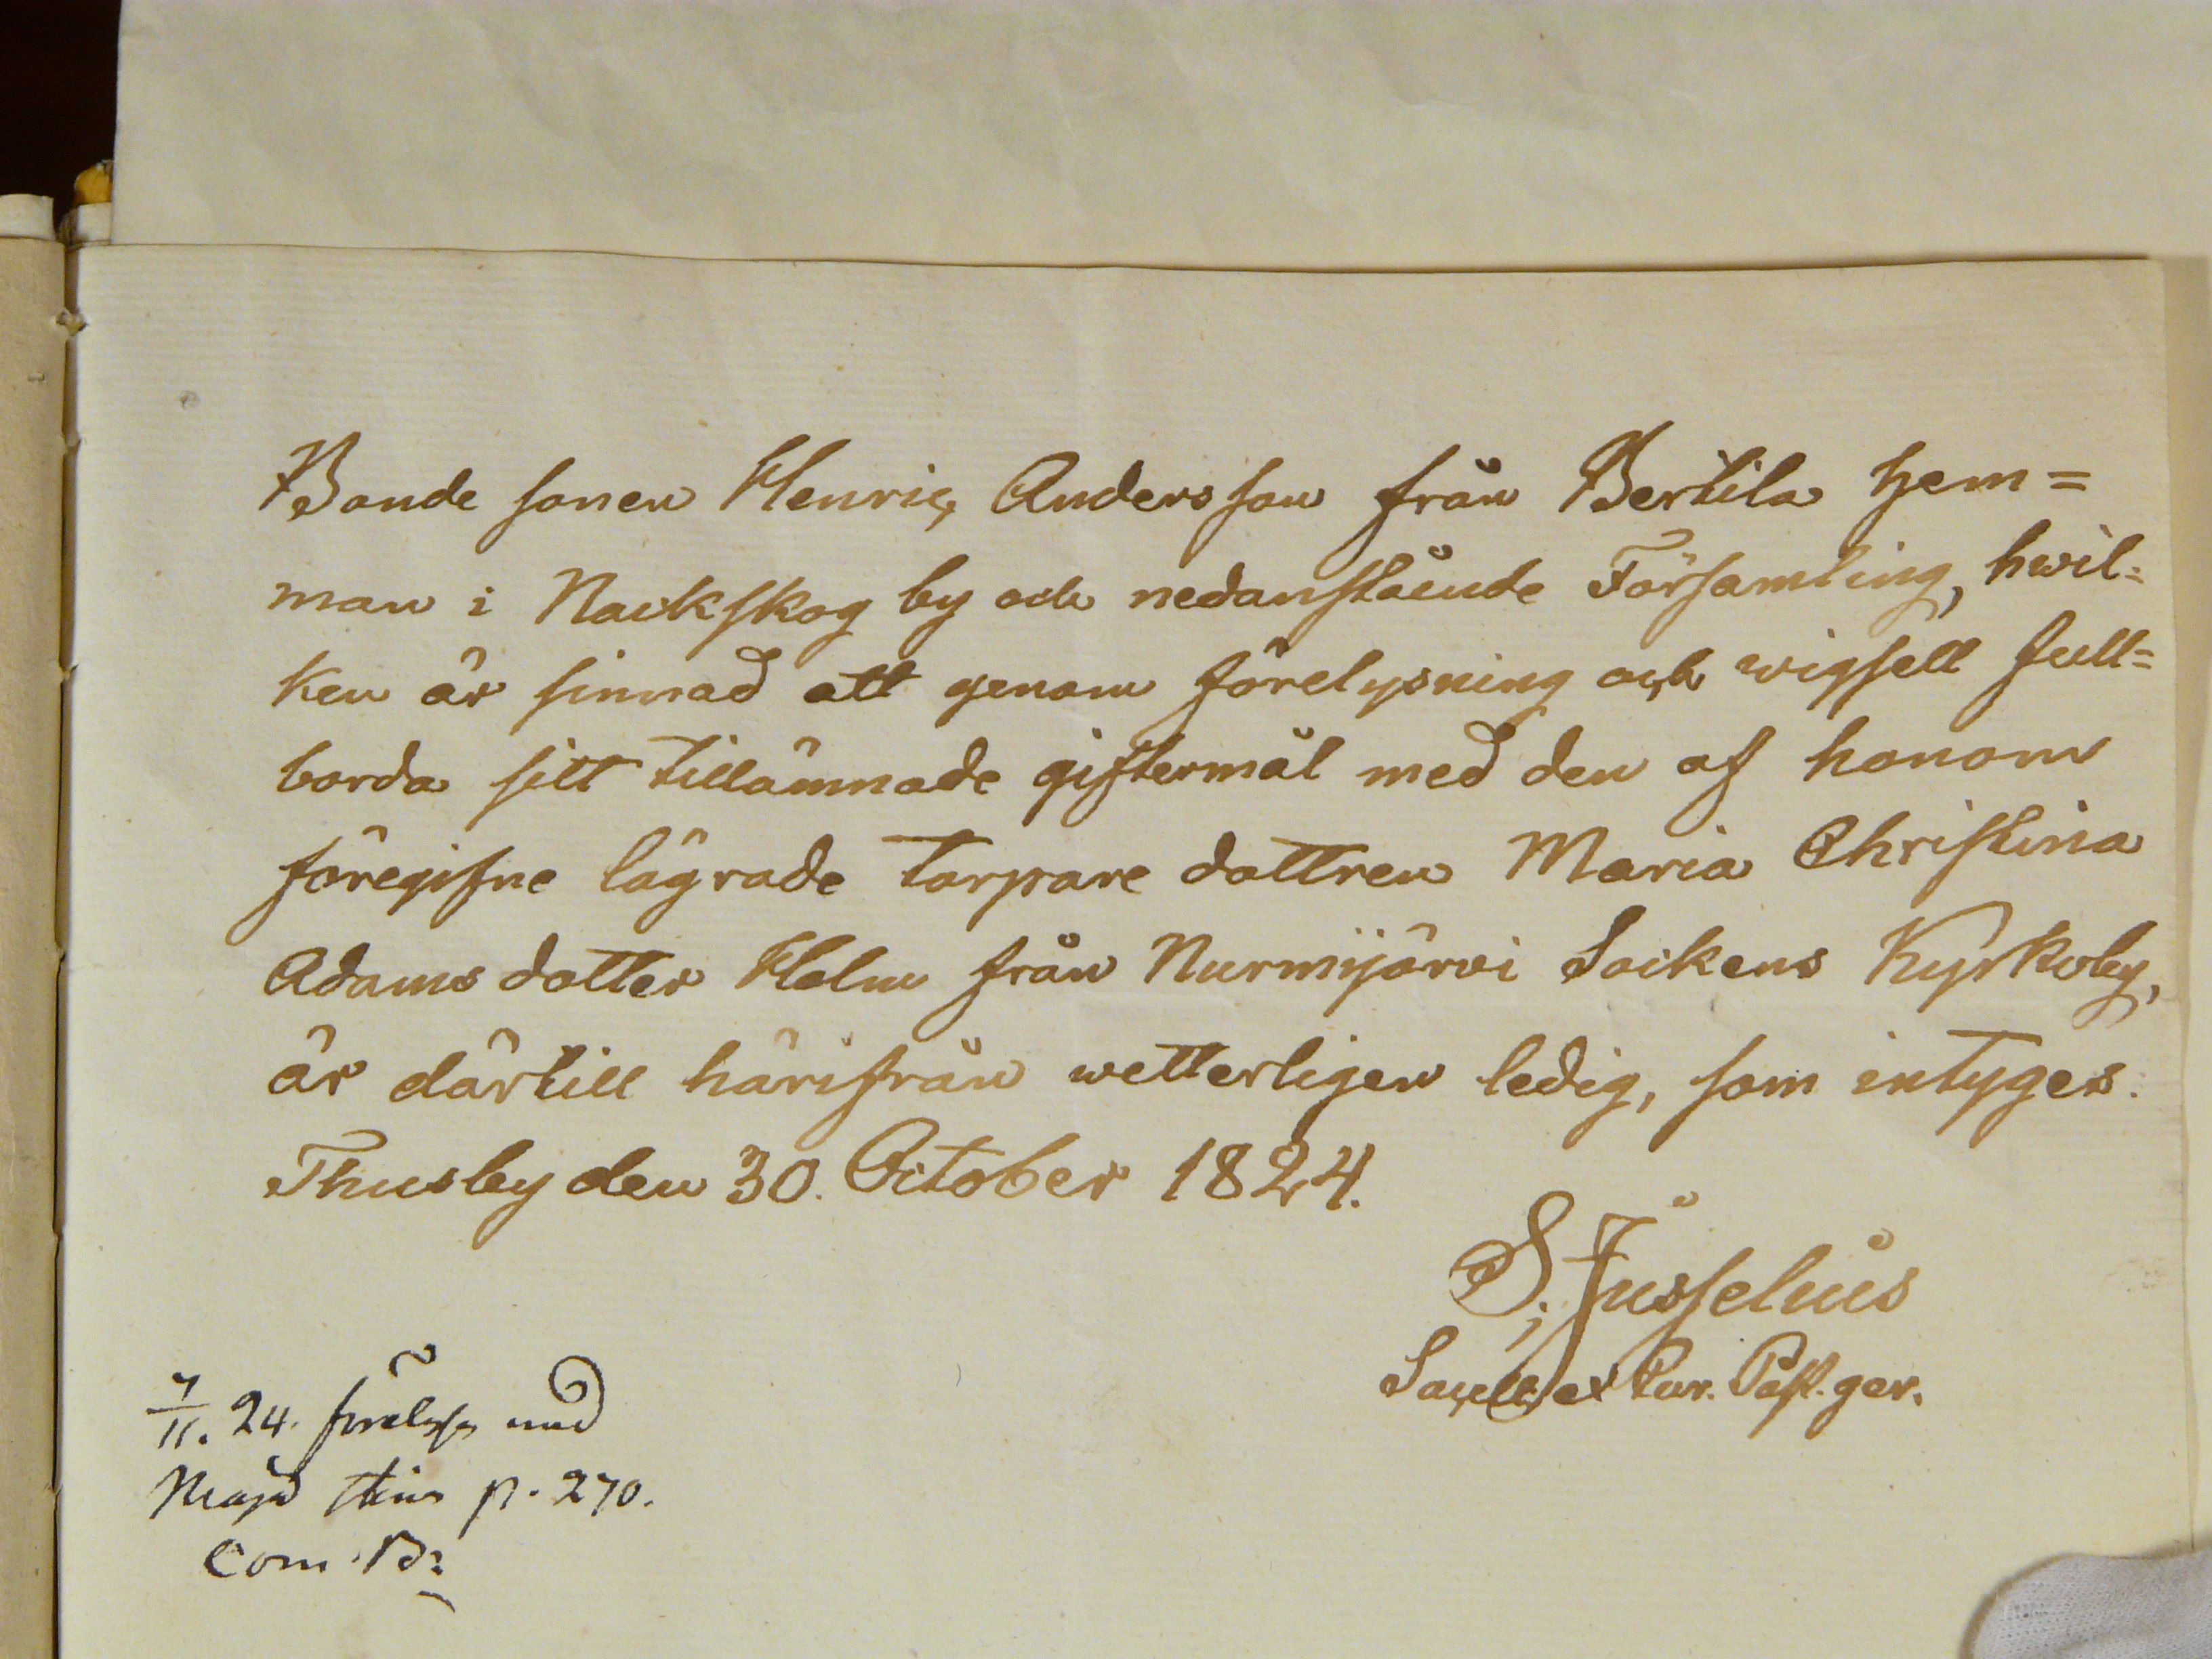 Bonde sonen Henric Andersson från Bertila hem=
man i Nackskog by och nedanstående Församling, hwil=
ken är sinnad att genom förelysning och wigsell full=
borda sitt tillämnade giftermål med den af honom
föregifne lägrade torpare dottren Maria Christina
Adams dotter Holm från Nurmijärvi Sockens Kyrkoby,
är därtill härifrån wetterligen ledig, som intyges.
Thusby den 30. October 1824.
S. Jusselius
Sacell. et Past. ger.
7/11. 24. med
Maja Stina p. 270.
Com. B: